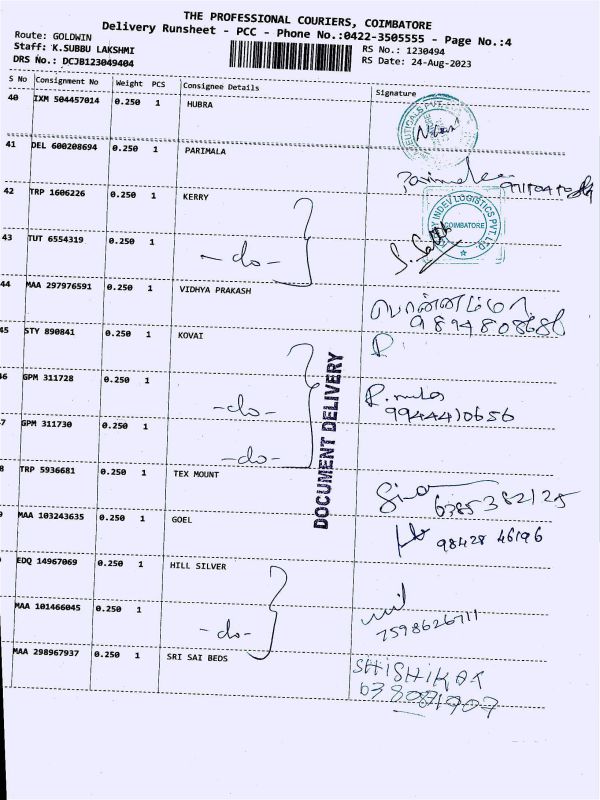 THE PROFESSIONAL COURIERS, COIMBATORE
Delivery Runsheet - PCC - Phone No.:0422-3505555 - Page No.:4
Route: GOLDWIN
RS No.: 1230494
Staff: K.SUBBU LAKSHMI
RS Date: 24-Aug-2023
DRS No.: DCJB123049404
S No Consignment No Weight PCS Consignee Details Signature
40 IXM 504457014 0.250 1 HUBRA
41 DEL 600208694 0.250 1 PARIMALA
42 TRP 1606226 0.250 1 KERRY
INDEV LOGISTICS PVT. LTD.
COIMBATORE
43 TUT 6554319 0.250 1 -do-
44 MAA 297976591 0.250 1 VIDHYA PRAKASH
9894808680
45 STY 890841 0.250 1 KOVAI
R.
46 GPM 311728 0.250 1 -do-
9944410656
47 GPM 311730 0.250 1 -do-
DOCUMENT DELIVERY
8 TRP 5936681 0.250 1 TEX MOUNT
6385382125
9 MAA 103243635 0.250 1 GOEL
98428 46196
EDQ 14967069 0.250 1 HILL SILVER
MAA 101466045 0.250 1 -do-
7598626711
MAA 298967937 0.250 1 SRI SAI BEDS
SHISHIKAT